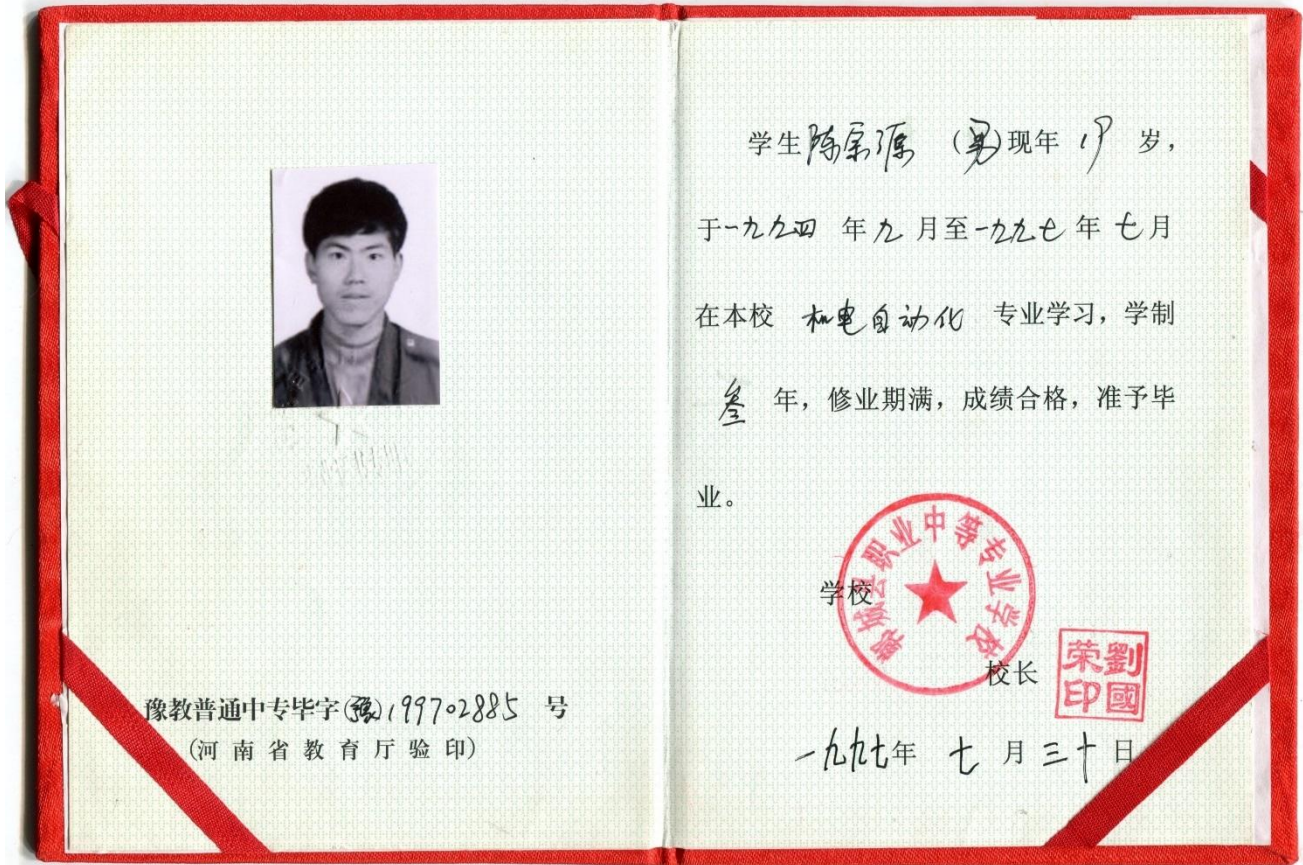 豫教普通中专毕字(豫)199702885 号
(河南省教育厅验印)
学生陈宗源 (男)现年 19 岁,
于一九九四 年九月至一九九七年七月
在本校 机电自动化 专业学习,学制
叁 年,修业期满,成绩合格,准予毕
业。
学校
郾城县职业中等专业学校
校长
劉國荣印
一九九七年 七 月三十日